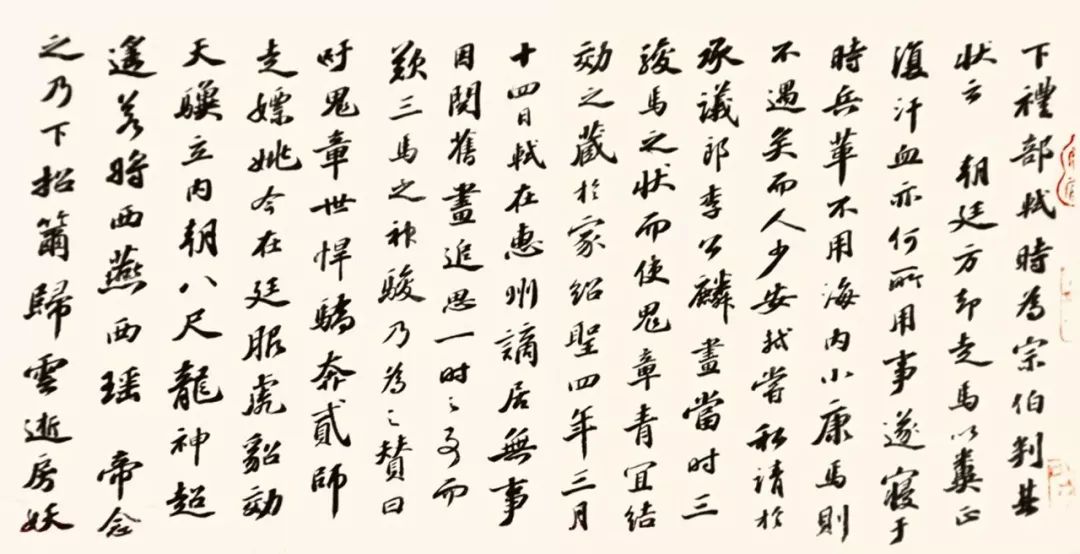 下禮部軾時為宗伯判其
狀云朝廷方却走馬以糞正
復汗血亦何所用事遂寢于
時兵革不用海內小康馬則
不遇矣而人少安軾嘗私請於
承議郎李公麟畫當時三
駿馬之狀而使鬼章青宜結
効之藏於家紹聖四年三月
十四日軾在惠州謫居無事
因閱舊畫追思一時之事而
歎三馬之神駿乃為之贊曰
吁鬼章世悍驕奔貳師
走嫖姚今在廷服虎貂効
天驥立內朝八尺龍神超
遙若將西燕西瑤帝念
之乃下招籋歸雲逝房妖